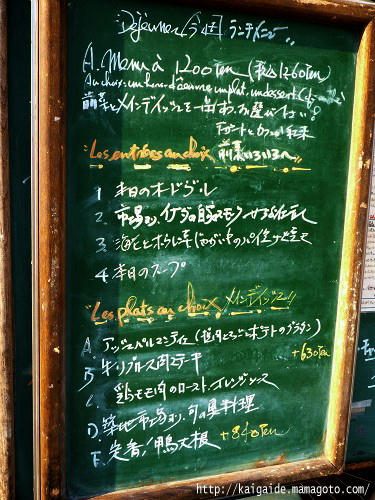 Déjeuner 今週 ランチメニュー
A. Menu à 1200Yen (税込1260Yen)
Au choix: un hors d'œuvre, un plat, un dessert
前菜とメインディッシュを一品ずつお選び下さい。
デザートとカフェ 又は 紅茶
"Les entrées au choix 前菜いろいろ"
1. 本日のオードブル
2. 市場より、
3. 海
4. 本日のスープ
"Les plats au choix メインディッシュ"
A. アッシェ パルマンティエ (挽肉とポテトのグラタン)
B. 牛リブロース肉ステーキ +630Yen
C. 鶏モモ肉のロースト、オレンジソース
D. 築地市場より、旬の魚料理
E. 定番！鴨大根 +840Yen
http://kaigaide.mamagoto.com/